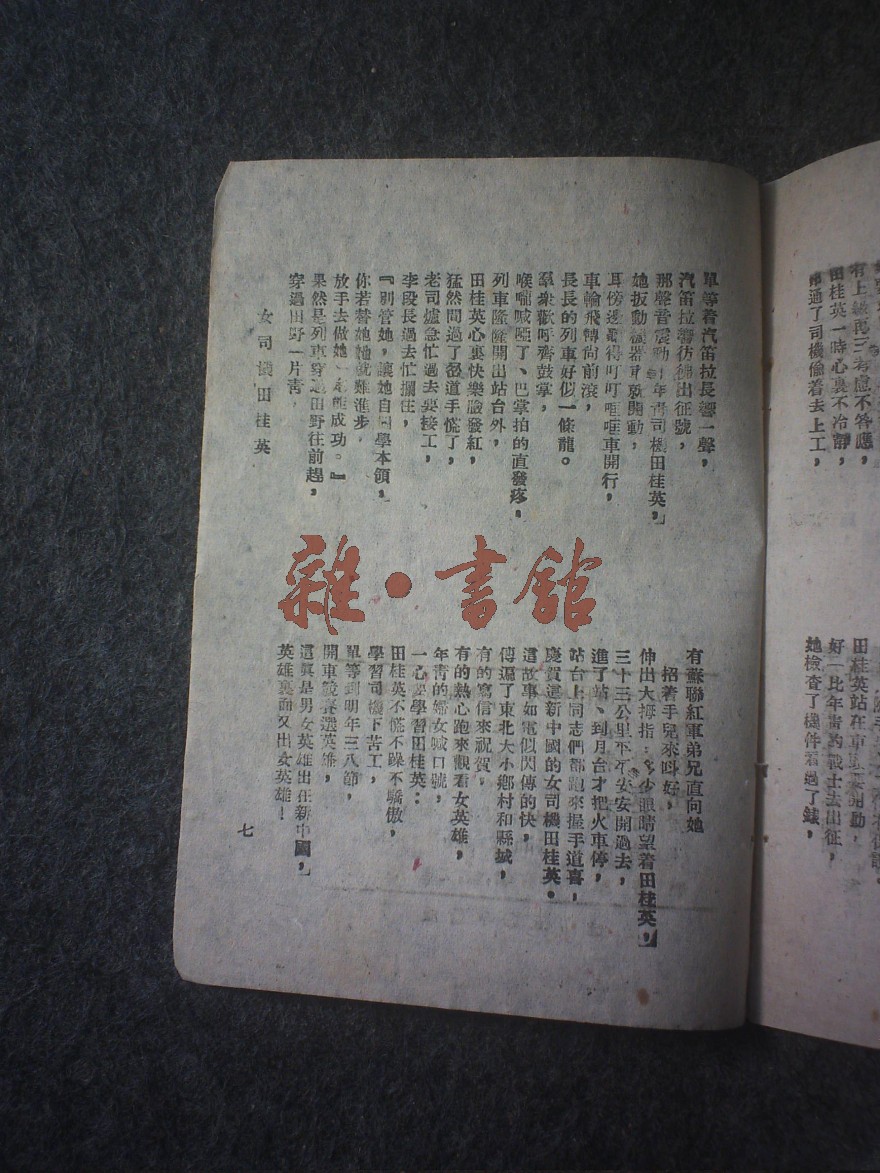 有上級再三考慮不答應，
田桂英一時心裏不冷靜，
通了司機偷着去上工，
田桂英站在車
開動，
好一比年青的戰士去出征，
她檢查了機件看過了錶，
單等着汽笛拉長響一聲，
汽笛拉響彷彿出征號，
那聲音震動年青司機田桂英，
她扳動機器就開動，
耳傍邊聽得叮叮哐哐車開行，
車輪飛轉向前滾，
長長的列車好似一條龍。
羣衆歡呼齊鼓掌，
喉嚨喊啞了、巴掌拍的直發疼，
列車隆隆開出站台外，
田桂英心裏快樂臉發紅，
猛然間過了岔道手慌了，
老司爐急忙過去要接工，
李段長過去忙攔住，
『別管她，讓她自己學本領，
你若替她她就難進步，
放手去做她一定能成功。』
果然是列車穿過田野往前趕，
穿過田野一片青，
有蘇聯紅軍弟兄直向她
招着手兒來叫好，
伸出大拇指：多少眼睛望着田桂英，
三十三公里平平安安開過去，
進了站、到月台才把火車停，
站台上同志們都跑來握手道喜，
慶賀這新中國的女司機田桂英。
這故事如電似閃傳的快，
傳遍了東北大小鄉村和縣城，
有的寫信來祝賀，
有的熱心跑來觀看女英雄，
年青的婦女喊口號，
一心要學習田桂英：
田桂英不慌不躁不驕傲，
學習司機下苦工，
單等到明年三八節，
開車競賽選英雄，
這眞是男女英雄出在新中國，
英雄裏面又出女英雄！
女司機田桂英
七
雜·書館